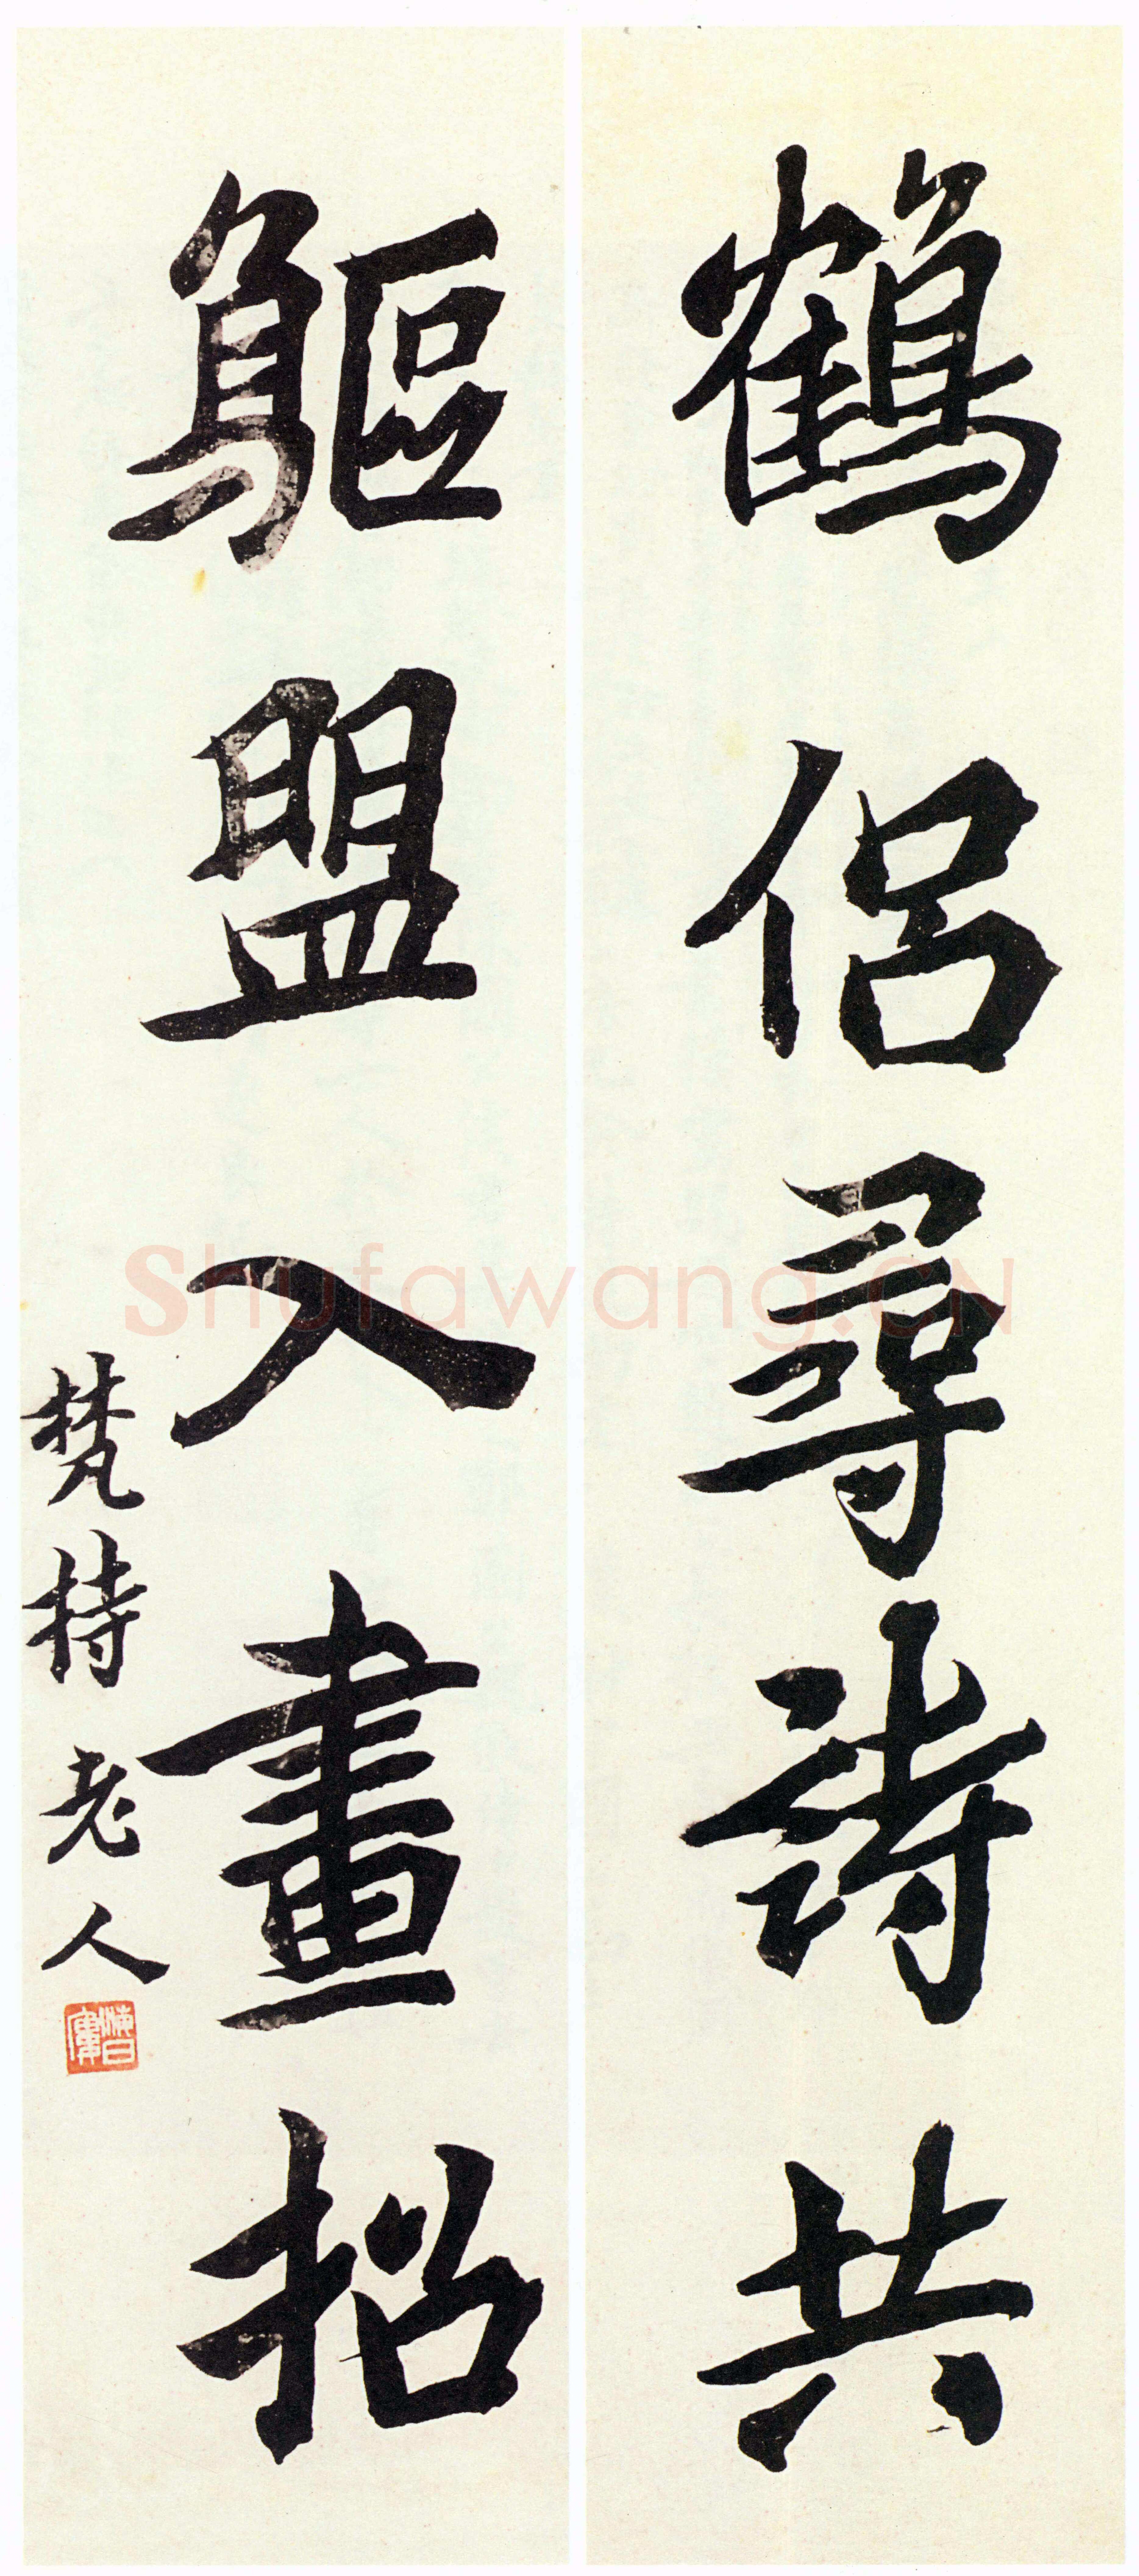 鶴侶尋詩共
鷗盟入畫招
梵持老人
海日廔
Shufawang.CN